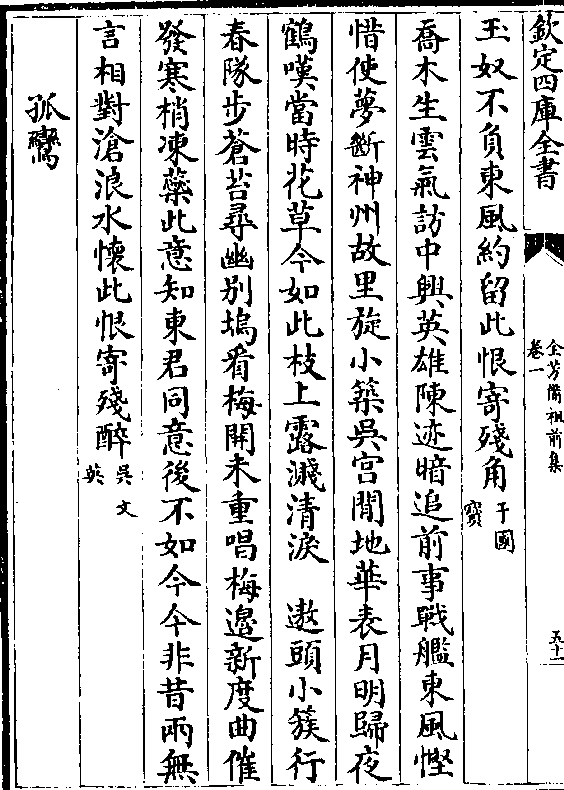 欽定四庫全書
全芳備祖前集
卷一
五十一
玉奴不負東風約留此恨寄殘角 于國
寳
喬木生雲氣訪中興英雄陳迹暗追前事戰艦東風慳
惜使夢斷神州故里旋小築吳宫閒地華表月明歸夜
鶴嘆當時花草今如此枝上露濺清淚 遨頭小簇行
春隊步蒼苔尋幽别塢看梅開未重唱梅邉新度曲催
發寒梢凍蘂此意知東君同意後不如今今非昔兩無
言相對滄浪水懷此恨寄殘醉 吳文
英
孤鸞